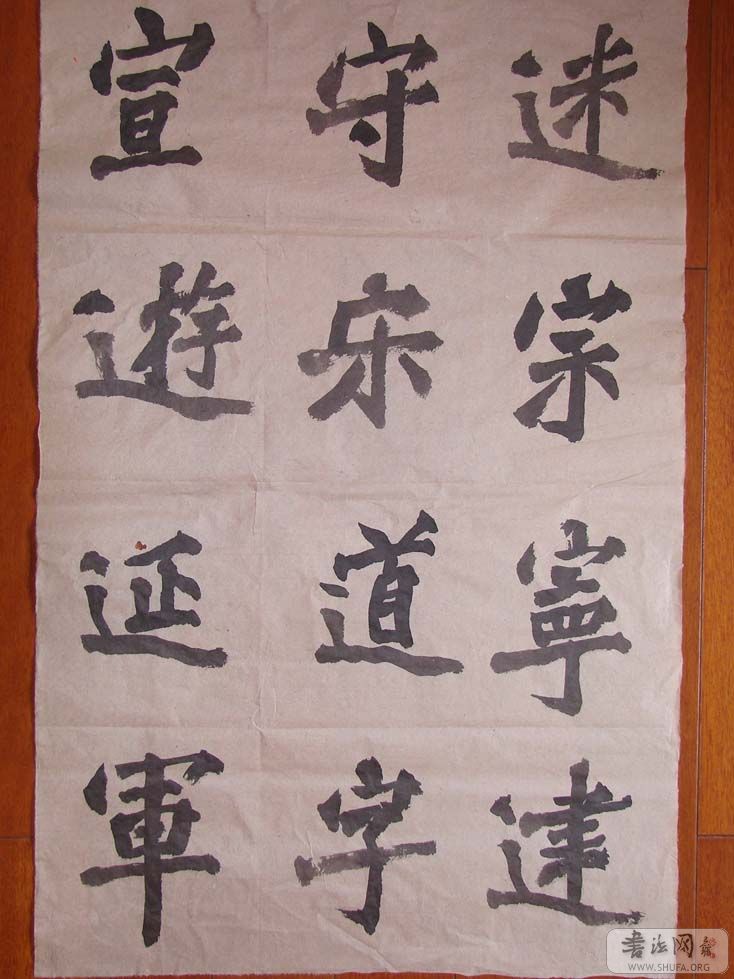 迷宗寧建
守宋道字
宣遊延軍
書法网
WWW.SHUFA.ORG